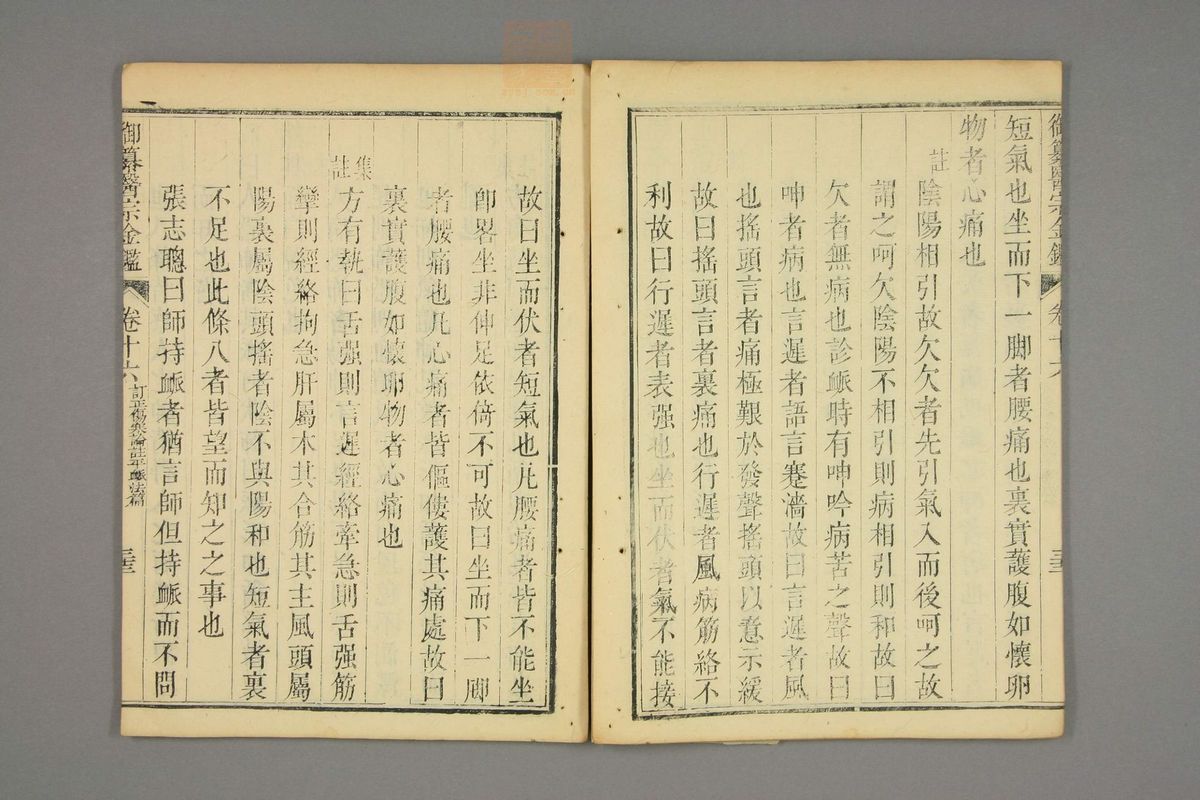 短氣也坐而下一脚者腰痛也裏實護腹如懷卵
物者心痛也
註陰陽相引故欠欠者先引氣入而後呵之故
謂之呵欠陰陽不相引則病相引則和故曰
欠者無病也診䘑時有呻吟病苦之聲故曰
呻者病也言遲者語言蹇濇故曰言遲者風
也搖頭言者痛極艱於發聲搖頭以意示緩
故曰搖頭言者裏痛也行遲者風病筋絡不
利故曰行遲者表强也坐而伏者氣不能接
故曰坐而伏者短氣也凡腰痛者皆不能坐
卽畧坐非伸足依倚不可故曰坐而下一脚
者腰痛也凡心痛者皆傴僂護其痛處故曰
裏實護腹如懷卵物者心痛也
集註方有執曰舌强則言遲經絡牽急則舌强筋
攣則經絡拘急肝屬木其合筋其主風頭屬
陽裏屬陰頭搖者陰不與陽和也短氣者裏
不足也此條八者皆望而知之之事也
張志聰曰師持䘑者猶言師但持䘑而不問
御纂醫宗金鑑
卷十六
訂正傷寒論註平䘑法篇